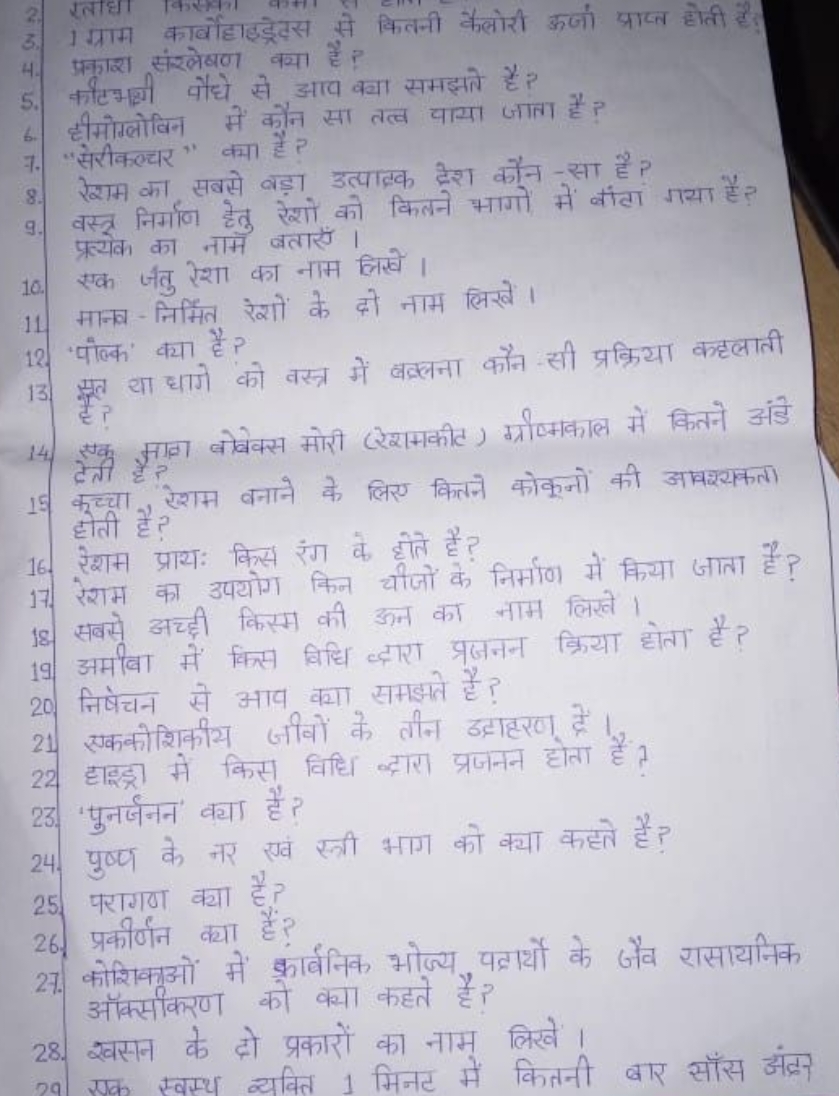 2. रतौंधी किसकी कमी से होता है
3. 1 ग्राम कार्बोहाइड्रेट्स से कितनी कैलोरी ऊर्जा प्राप्त होती है?
4. प्रकाश संश्लेषण क्या है?
5. कीटभक्षी पौधे से आप क्या समझते है?
6. हीमोग्लोबिन में कौन सा तत्व पाया जाता है?
7. "सेरीकल्चर" क्या है?
8. रेशम का सबसे बड़ा उत्पादक देश कौन-सा है?
9. वस्त्र निर्माण हेतु रेशों को कितने भागों में बाँटा गया है?
प्रत्येक का नाम बताएँ।
10. एक जंतु रेशा का नाम लिखें।
11. मानव-निर्मित रेशों के दो नाम लिखें।
12. 'पोल्क' क्या है?
13. सूत या धागे को वस्त्र में बदलना कौन-सी प्रक्रिया कहलाती
है?
14. एक मादा बोंबेक्स मोरी (रेशमकीट) ग्रीष्मकाल में कितने अंडे
देती है?
15. कच्चा रेशम बनाने के लिए कितने कोकूनों की आवश्यकता
होती है?
16. रेशम प्रायः किस रंग के होते है?
17. रेशम का उपयोग किन चीजों के निर्माण में किया जाता है?
18. सबसे अच्छी किस्म की ऊन का नाम लिखें।
19. अमीबा में किस विधि द्वारा प्रजनन क्रिया होता है?
20. निषेचन से आप क्या समझते है?
21. एककोशिकीय जीवों के तीन उदाहरण दें।
22. हाइड्रा में किस विधि द्वारा प्रजनन होता है?
23. 'पुनर्जनन' क्या है?
24. पुष्प के नर एवं स्त्री भाग को क्या कहते है?
25. परागण क्या है?
26. प्रकीर्णन क्या है?
27. कोशिकाओं में कार्बनिक भोज्य पदार्थो के जैव रासायनिक
ऑक्सीकरण को क्या कहते है?
28. श्वसन के दो प्रकारों का नाम लिखें।
29 एक स्वस्थ व्यक्ति 1 मिनट में कितनी बार साँस अंदर